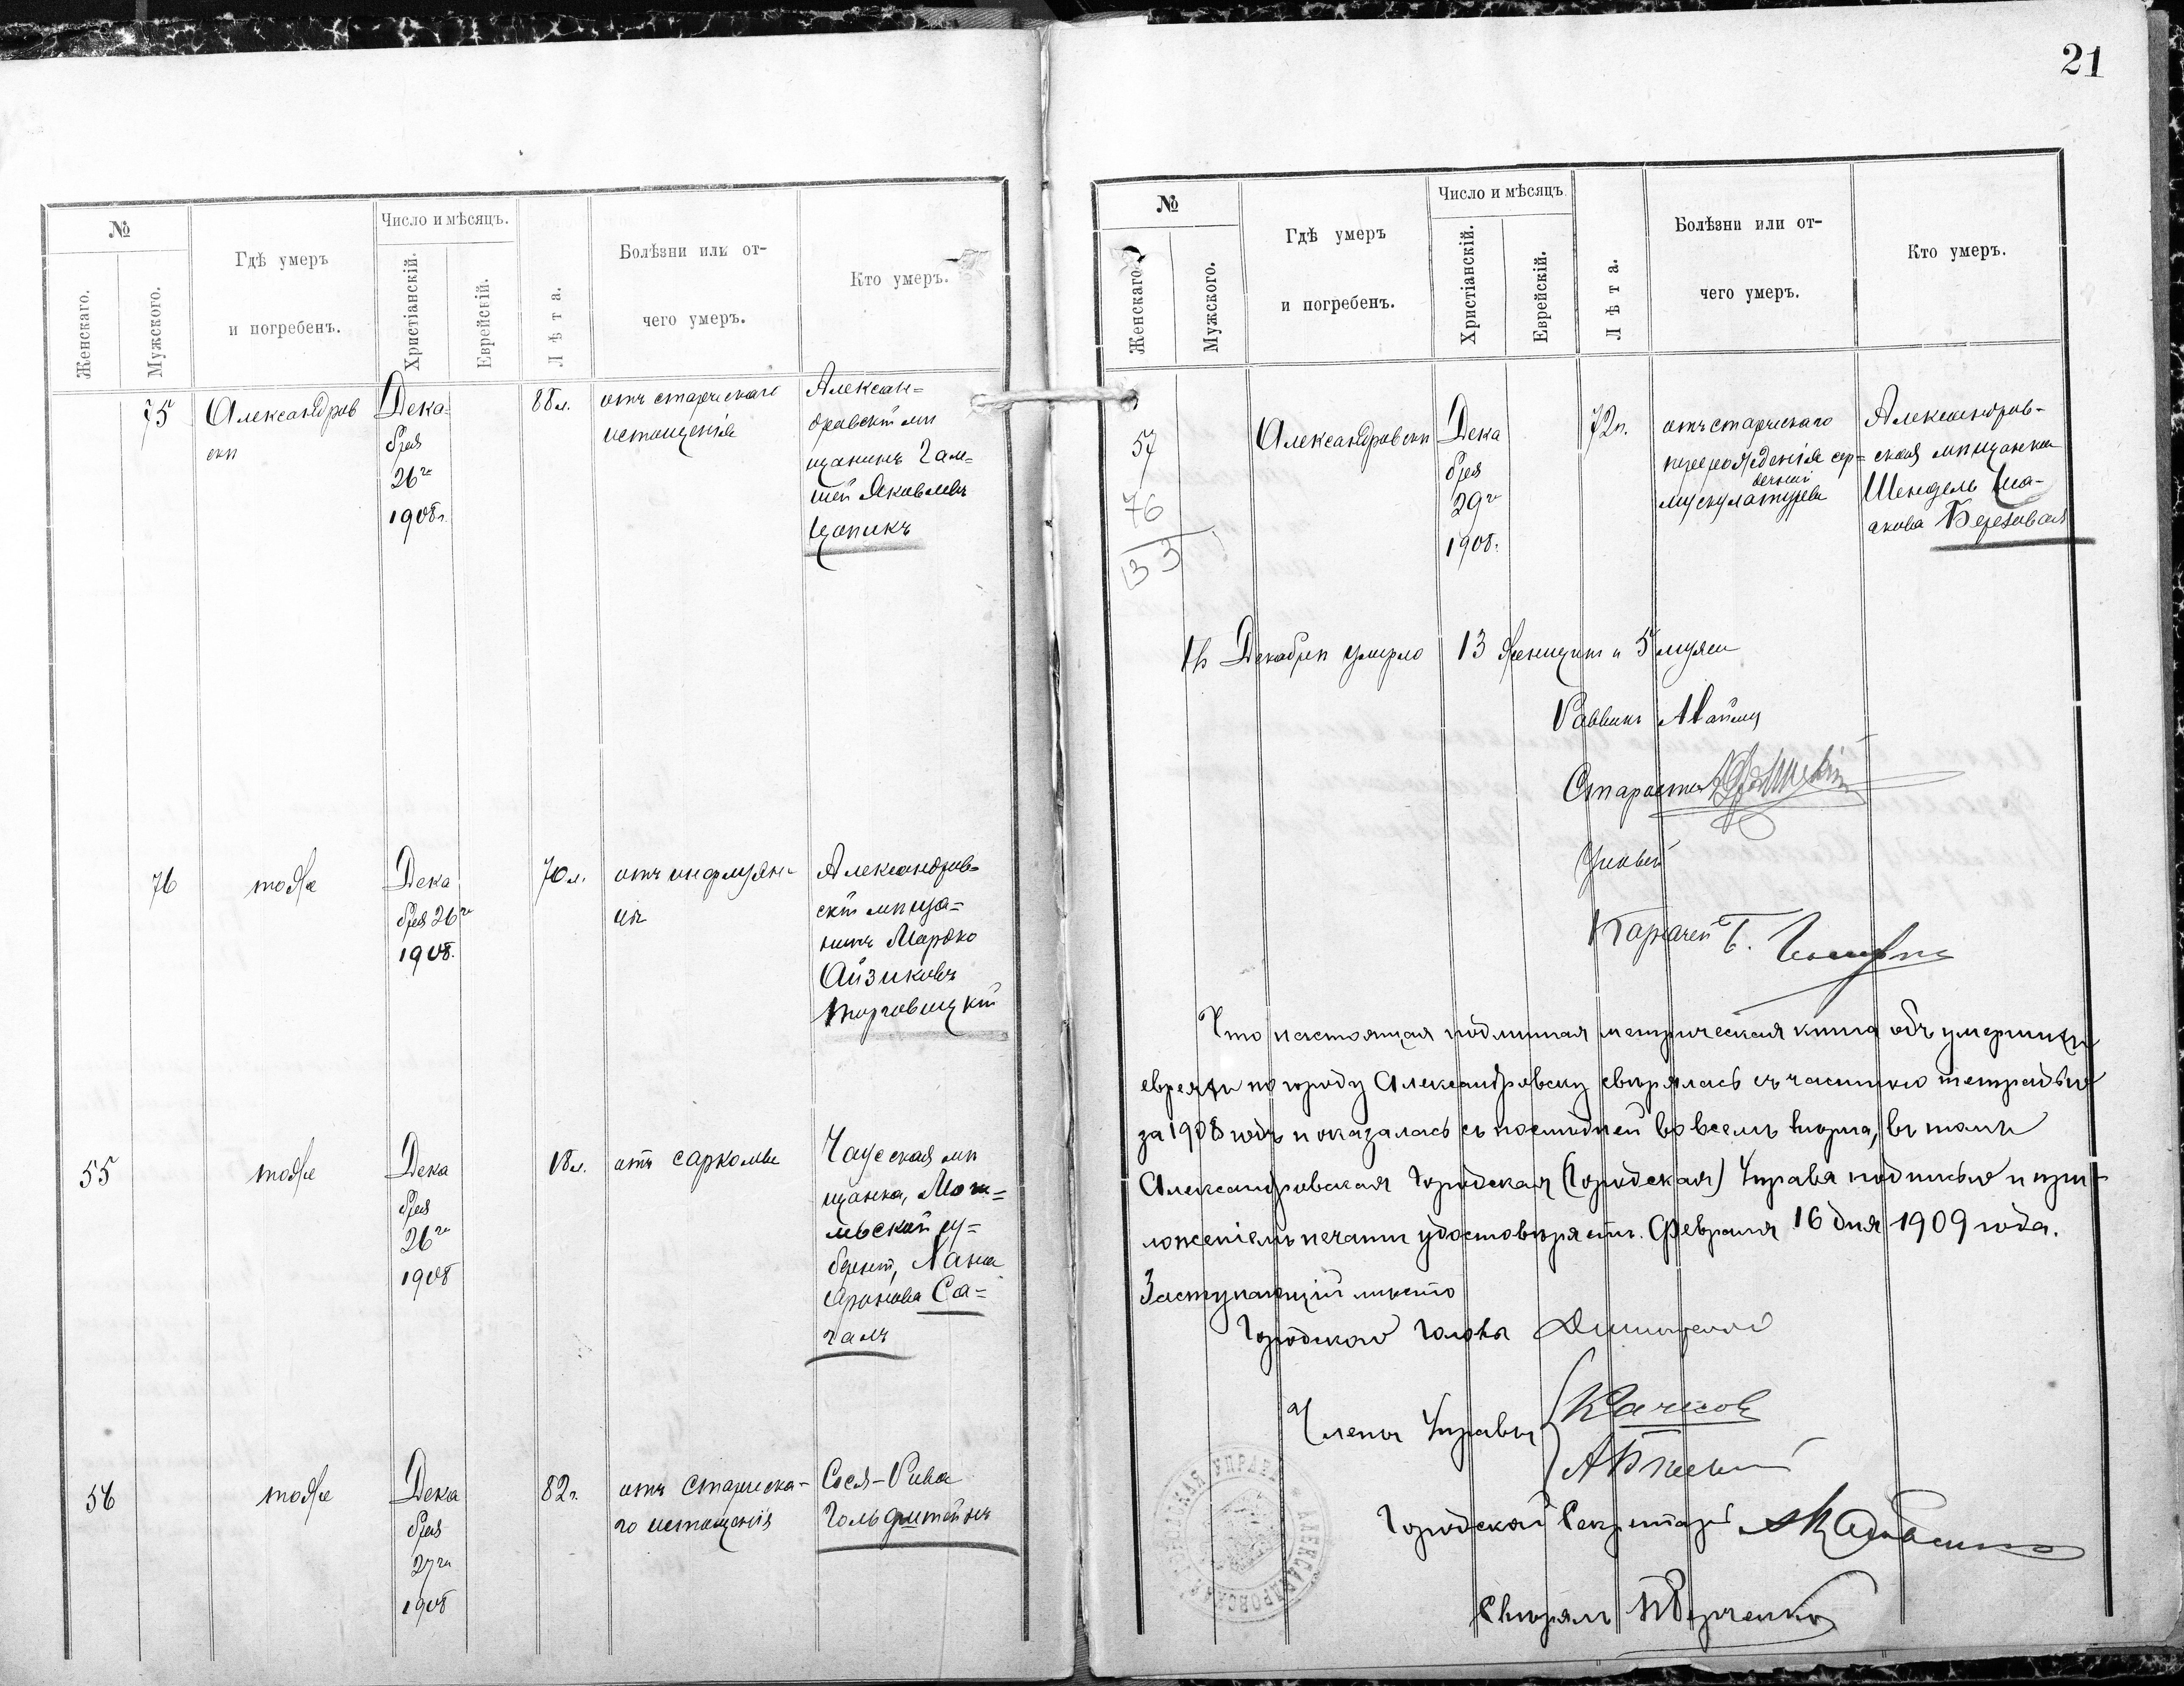 №
Женскаго.
Мужского.
Гдѣ умеръ
и погребенъ.
Число и мѣсяцъ.
Христіанскій.
Еврейскій.
Лѣта.
Болѣзни или от-
чего умеръ.
Кто умеръ.
75
Александров
скѣ
Дека-
бря
26го
1908г.
88л.
отъ старческаго
истощенія
Алексан=
дровскій мѣ
щанинъ
шей Яковлевъ
Цапикъ
76
тоже
Дека
бря 26го
1908.
70л.
отъ инфлуэн
Александров=
скій мѣща=
нинъ Мардко
Айзиковъ
Торговицкій
55
тоже
Дека
бря
26го
1908
18л.
отъ саркомы
Чауская мѣ
щанка, Моги=
льской гу=
берніи, Хана
Аронова Са=
галъ
56
тоже
Дека
бря
27го
1908
82г.
отъ старческа-
го истощенія
Сося-Рива
Гольдштейнъ
21
№
Женскаго
Мужского.
Гдѣ умеръ
и погребенъ.
Число и мѣсяцъ.
Христіанскій.
Еврейскій.
Лѣта.
Болѣзни или от-
чего умеръ.
Кто умеръ.
57
76
133
Александровскѣ
Дека
бря
29го
1908.
72г.
отъ старческаго
перерожденія сер=
дечной
мускулатуры
Александров-
ская мѣщанка
Шендель Иса-
акова Березовая
Въ Декабрѣ умерло 13 женщинъ и 5 мужч
Раввинъ
Староста
Ученый
Казначей Б.
Что настоящая подлинная метрическая книга объ умершихъ
евреяхъ по городу Александровску свѣрялась съ частною тетрадью
за 1908 годъ и оказалась съ послѣдней во всемъ вѣрна, въ томъ
Александровская Городская (Городская) Управа подписью и при-
ложеніемъ печати удостовѣряетъ. Февраля 16 дня 1909 года.
Заступающій мѣсто
Городского Головы
Члены Управы
Городской Секретарь
Свѣрялъ
АЛЕКСАНДРОВСКАЯ ГОРОДСКАЯ УПРАВА